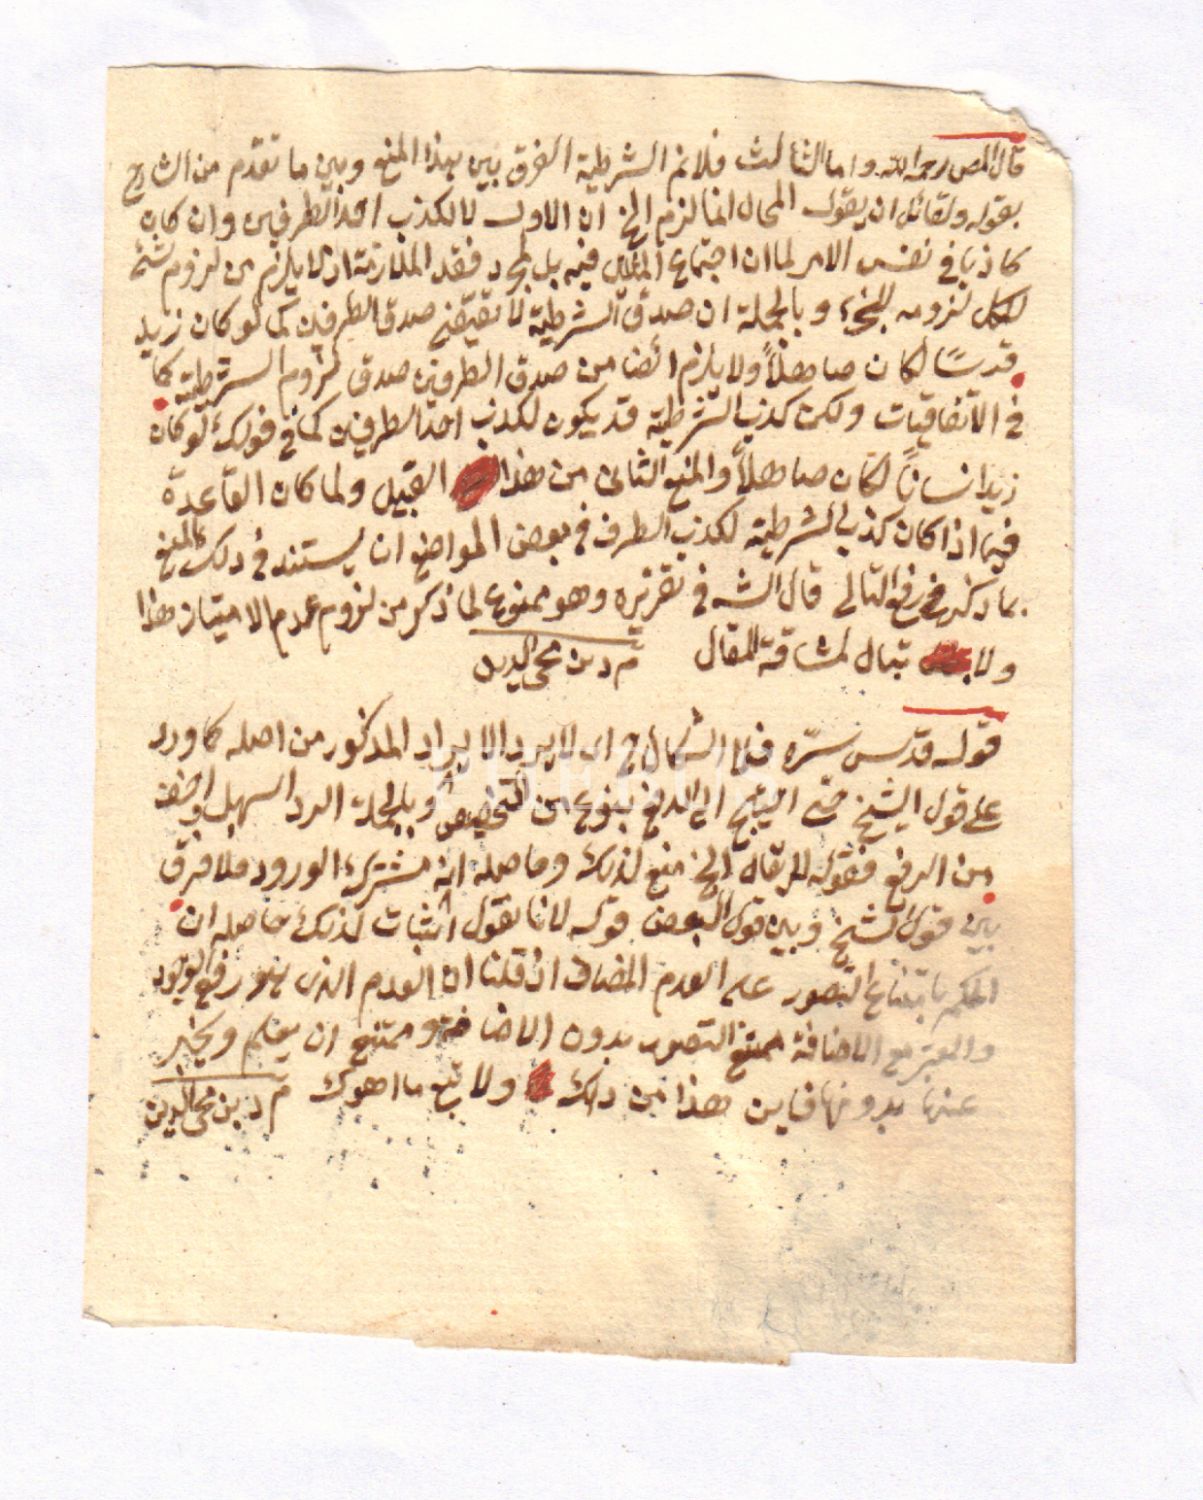 قال المص رحمه الله واما الثالث فلانم الشرطية الفرق بين هذا المنع وبين ما تقدم من الشارح
بقوله ولقائل ان يقول المحال انما لزم الخ ان الاول لا لكذب احد الطرفين وان كان
كاذبا في نفس الامر لما ان اجتماع فيه بل لمجرد فقد الملازمة اذ لا يلزم من لزوم شئ
للكل لزومه للجزء وبالجملة ان صدق الشرطية لا تقتضي صدق الطرفين كما لو كان زيد
فرسًا لكان صاهلاً ولا يلزم ايضا من صدق الطرفين صدق لزوم الشرطية كما
في الاتفاقيات ولكن كذب الشرطية قد يكون لكذب احد الطرفين كما في قولك لو كان
زيد انسانًا لكان صاهلاً والمنع الثاني من هذا القبيل ولما كان القاعدة
فيما اذا كان كذب الشرطية لكذب الطرف في بعض المواضع ان يستند في ذلك المنع
بما ذكر في رفع التالي قال الشه في تقريره وهو ممنوع لما ذكر من لزوم عدم الامتياز هذا
ولا تبال لمشاقة المقال م د بن محي الدين
قوله قدس سره فلا اشكال ح اى لا يرد الايراد المذكور من اصله كما ورد
على قول الشيخ حتى احتيج الى الدفع بنوع من التخصيص وبالجملة الرد اسهل واخف
من الرفع فقوله لا يقال الخ منع لذلك وحاصله انه مشترك الورود فلا فرق
بين قول الشيخ وبين قول البعض قوله لانا نقول اثبات لذلك حاصله ان
الحكم بامتناع التصور على العدم المضاف اذ قلنا ان العدم الذى هو رفع الوجود
والمعتبر مع الاضافة ممتنع التصور بدون الاضافة وممتنع ان يعلم ويخبر
عنها بدونها فاين هذا من ذلك ولا تتبع ما اهوك م د بن محي الدين
PHEBUS